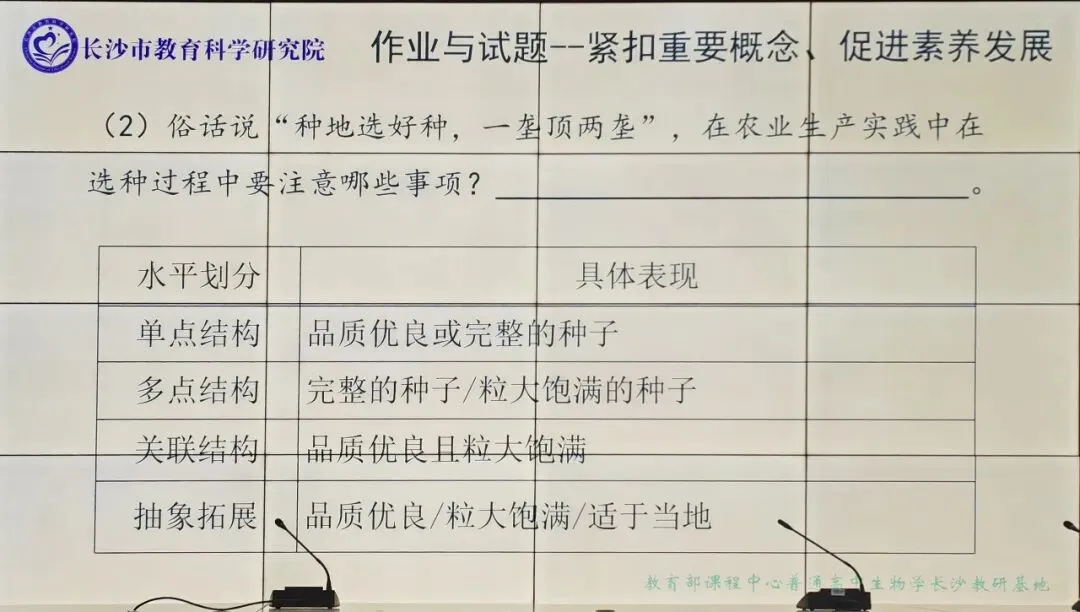 长沙市教育科学研究院
作业与试题--紧扣重要概念、促进素养发展
（2）俗话说“种地选好种，一垄顶两垄”，在农业生产实践中在
选种过程中要注意哪些事项？
。
水平划分 具体表现
单点结构 品质优良或完整的种子
多点结构 完整的种子/粒大饱满的种子
关联结构 品质优良且粒大饱满
抽象拓展 品质优良/粒大饱满/适于当地
教育部课程中心普通高中生物学长沙教研基地